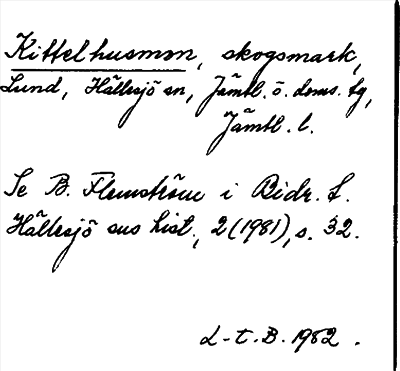 Kittelhusmon, skogsmark,
Lund, Hällesjö sn, Jämtl. ö. doms. tg,
Jämtl. l.
Se B. Flemström i Bidr. t.
Hällesjö sns hist., 2 (1981), s. 32.
L-t. B. 1982.